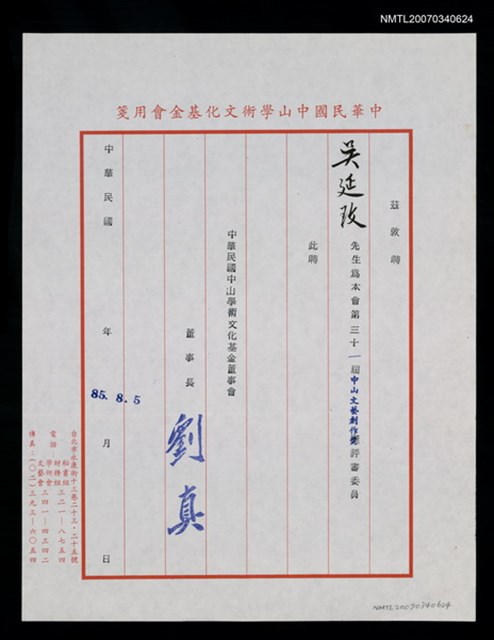 NMTL20070340624
中華民國中山學術文化基金會用箋
茲敦聘
吳廷玫先生為本會第三十一屆中山文藝創作獎評審委員
此聘
中華民國中山學術文化基金董事會
董事長 劉真
中華民國 年 月 日
85.8.5
台北市永康街十三巷二十三・二十五號
電話：秘書組 財務組 三二一—八七五四
學術會 文藝會 三四一—四三四二
傳真：(〇二)三九三—六〇五四
NMTL20070340624